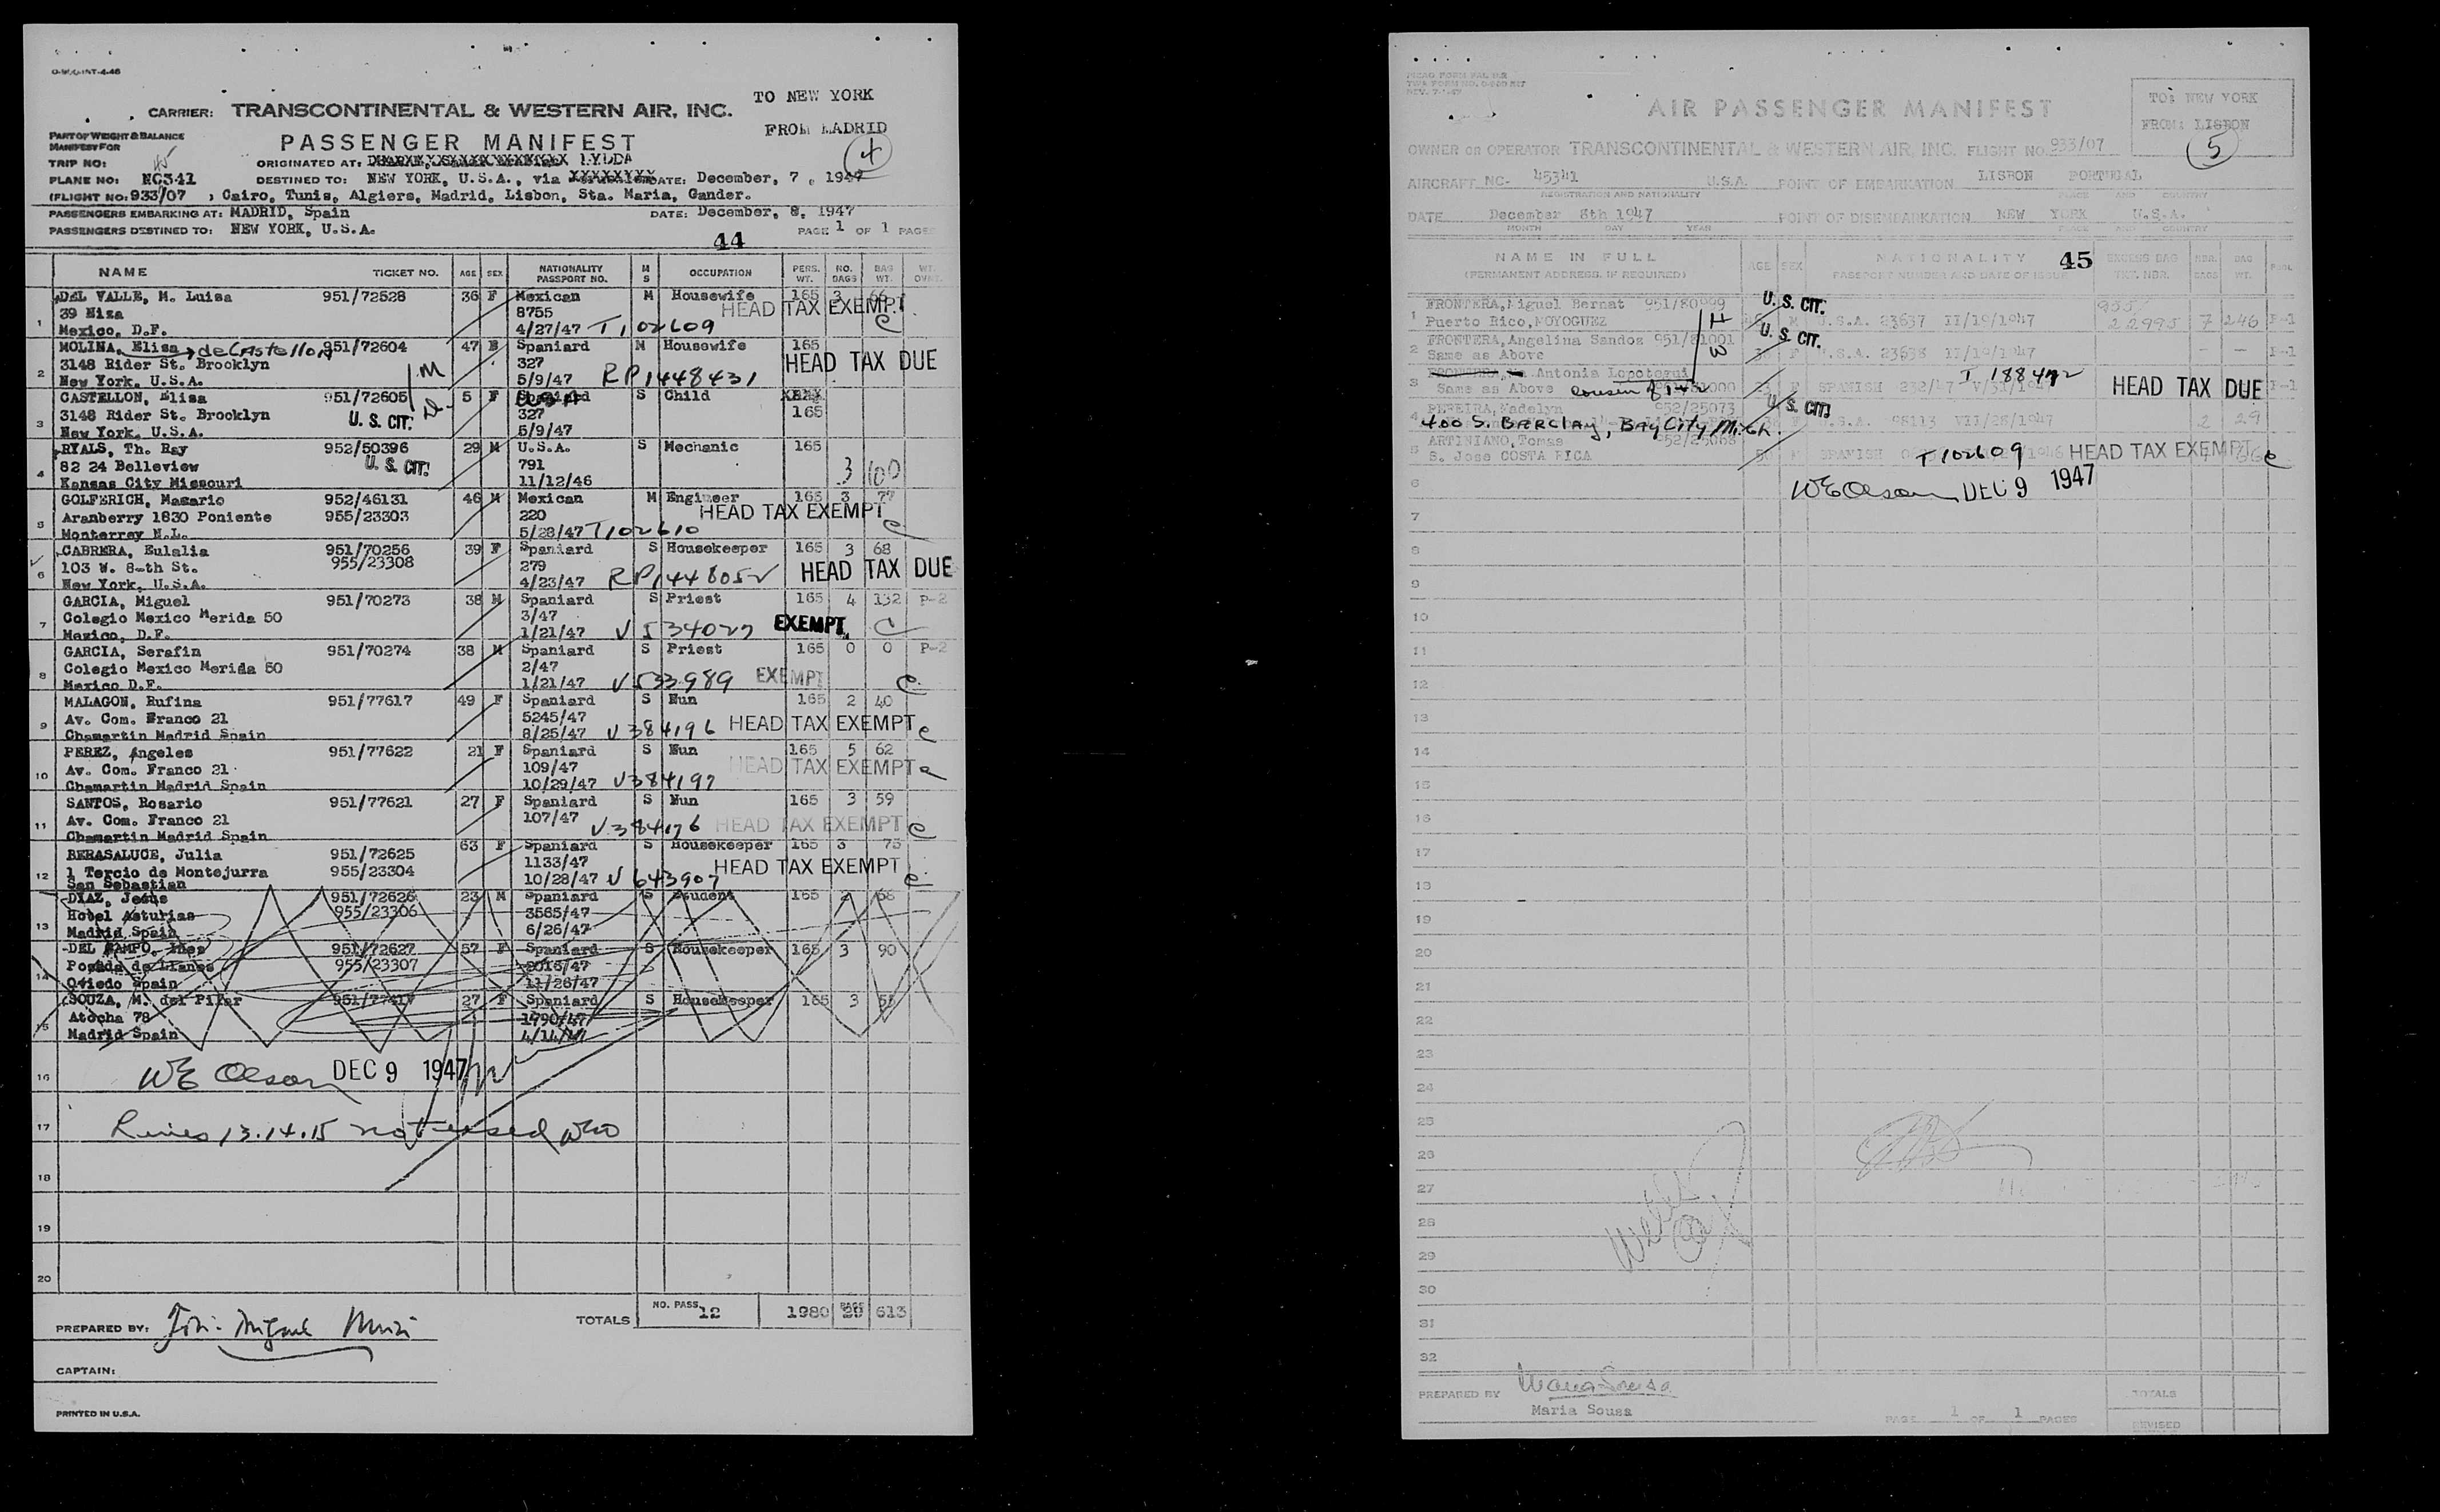 O-W/O-INT-4-46
CARRIER: TRANSCONTINENTAL & WESTERN AIR, INC.
TO NEW YORK
FROM MADRID
4
PART OF WEIGHT & BALANCE
MANIFEST FOR
PASSENGER MANIFEST
TRIP NO:
ORIGINATED AT: LYDDA
45
PLANE NO: NC341
DESTINED TO: NEW YORK, U.S.A., via DATE: December, 7, 1947
(FLIGHT NO: 933/07 , Cairo, Tunis, Algiers, Madrid, Lisbon, Sta. Maria, Gander.
PASSENGERS EMBARKING AT: MADRID, Spain DATE: December, 8, 1947
PASSENGERS DESTINED TO: NEW YORK, U.S.A. PAGE 1 OF 1 PAGES
44
NAME TICKET NO. AGE SEX NATIONALITY PASSPORT NO. M S OCCUPATION PERS. WT. NO. BAGS BAG WT. WT. OWNT.
1 DEL VALLE, M. Luisa 951/72528 36 F Mexican M Housewife 165 3 66
39 Niza 8755 HEAD TAX EXEMPT
Mexico, D.F. 4/27/47 T102609 C
2 MOLINA, Elisa de Castellon 951/72604 47 F Spaniard M Housewife 165
3148 Rider St. Brooklyn 327 HEAD TAX DUE
New York, U.S.A. 5/9/47 RP1448431
M
3 CASTELLON, Elisa 951/72605 5 F USA S Child
3148 Rider St. Brooklyn U. S. CIT. D. 327 165
New York, U.S.A. 5/9/47
4 RYALS, Th. Ray 952/50396 29 M U.S.A. S Mechanic 165
82 24 Belleview U. S. CIT. 791 3 100
Kansas City Missouri 11/12/46
5 GOLFERICH, Macario 952/46131 46 M Mexican M Engineer 165 3 77
Aranberry 1830 Poniente 955/23303 220 HEAD TAX EXEMPT
Monterrey N.L. 5/28/47 T102610 C
6 CABRERA, Eulalia 951/70256 39 F Spaniard S Housekeeper 165 3 68
103 W. 8-th St. 955/23308 279 HEAD TAX DUE
New York, U.S.A. 4/23/47 RP1448052
7 GARCIA, Miguel 951/70273 38 M Spaniard S Priest 165 4 132 P-2
Colegio Mexico Merida 50 3/47
Mexico, D.F. 1/21/47 V534027 EXEMPT C
8 GARCIA, Serafin 951/70274 38 M Spaniard S Priest 165 0 0 P-2
Colegio Mexico Merida 50 2/47
Mexico D.F. 1/21/47 V533989 EXEMPT C
9 MALAGON, Rufina 951/77617 49 F Spaniard S Nun 165 2 40
Av. Com. Franco 21 5245/47 HEAD TAX EXEMPT
Chamartin Madrid Spain 8/25/47 V384196 C
10 PEREZ, Angeles 951/77622 21 F Spaniard S Nun 165 5 62
Av. Com. Franco 21 109/47 HEAD TAX EXEMPT
Chamartin Madrid Spain 10/29/47 V384197
11 SANTOS, Rosario 951/77621 27 F Spaniard S Nun 165 3 59
Av. Com. Franco 21 107/47 HEAD TAX EXEMPT C
Chamartin Madrid Spain V384176
12 BERASALUCE, Julia 951/72625 63 F Spaniard S Housekeeper 165 3 75
1 Tercio de Montejurra 955/23304 1133/47 HEAD TAX EXEMPT
San Sebastian 10/28/47 V643907 C
13 DIAZ, Jesus 951/72626 23 M Spaniard S Student 165 2 68
Hotel Asturias 955/23306 3565/47
Madrid Spain 6/26/47
14 DEL CAMPO, Ines 951/72627 57 F Spaniard S Housekeeper 165 3 90
Posada de Llanes 955/23307 2016/47
Oviedo Spain 11/26/47
15 SOUZA, M. del Pilar 951/77417 27 F Spaniard S Housekeeper 165 3 55
Atocha 78 1790/47
Madrid Spain 4/14/47
16 WE Olson DEC 9 1947
17 Lines 13.14.15 not used WEO
18
19
20
TOTALS NO. PASS. 12 1980 613
PREPARED BY:
CAPTAIN:
PRINTED IN U.S.A.
AIR PASSENGER MANIFEST
TO: NEW YORK
FROM: LISBON
5
OWNER OR OPERATOR TRANSCONTINENTAL & WESTERN AIR, INC. FLIGHT NO. 933/07
AIRCRAFT NC- 45341 U.S.A. POINT OF EMBARKATION LISBON PORTUGAL
REGISTRATION AND NATIONALITY PLACE AND COUNTRY
DATE December 8th 1947 POINT OF DISEMBARKATION NEW YORK U.S.A.
MONTH DAY YEAR PLACE AND COUNTRY
NAME IN FULL AGE SEX NATIONALITY 45 EXCESS BAG NBR. BAG
(PERMANENT ADDRESS, IF REQUIRED) PASSPORT NUMBER AND DATE OF ISSUE TKT. NBR. BAGS WT.
1 FRONTERA, Miguel Bernat 951/80999 U. S. CIT. 955/
Puerto Rico, MOYOGUEZ H M U.S.A. 23637 II/19/1947 22995 7 246 P-1
2 FRONTERA, Angelina Sandoz 951/81001 U. S. CIT.
Same as Above W F U.S.A. 23638 II/19/1947 - - P-1
3 Antonia Lopotegui T 188472
Same as Above cousin of 1+2 F SPANISH 232/47 V/31/1947 HEAD TAX DUE P-1
4 PEREIRA, Madelyn 952/25073 U. S. CIT.
400 S. BARCLAY, BAY CITY Mich. F U.S.A. 98113 VII/28/1947 2 29
5 ARTINIANO, Tomas 952/25068
S. Jose COSTA RICA 50 M SPANISH T102609 HEAD TAX EXEMPT C
6 WE Olson DEC 9 1947
7
8
9
10
11
12
13
14
15
16
17
18
19
20
21
22
23
24
25
26
27
28
29
30
31
32
PREPARED BY Maria Sousa
Maria Sousa
TOTALS
PAGE 1 OF 1 PAGES
REVISED